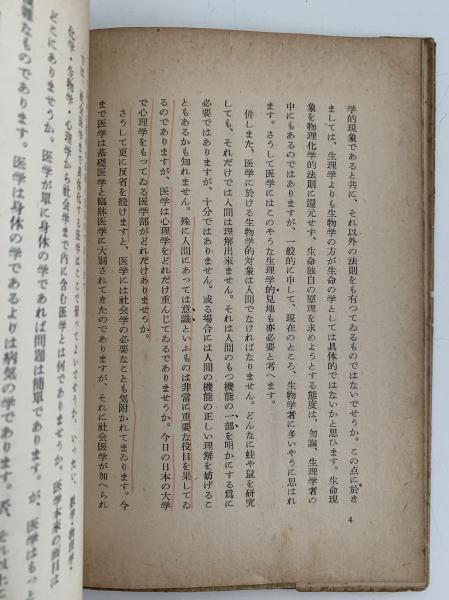 4
学的現象であると共に、それ以外の法則をも有つてゐるものではないでせうか。この点に於き
ましては、生理学よりも生物学の方が生命の学としては具体的ではないかと思ひます。生命現
象を物理化学的法則に還元せず、生命独自の原理を求めようとする態度は、勿論、生理学者の
中にもあるのではありますが、一般的に申して、現在のところ、生物学者に多いやうに思はれ
ます。さうして医学にはこのやうな生理学的見地も亦必要と考へます。
併しまた、医学に於ける生物学的対象は人間でなければなりません。どんなに蛙や鼠を研究
しても、それだけでは人間は理解出来ません。それは人間のもつ機能の一部を明かにする為に
必要ではありますが、十分ではありません。或る場合には人間の機能の正しい理解を妨げるこ
ともあるかも知れません。殊に人間にあつては意識といふものは非常に重要な役目を果してゐ
るのでありますが、医学は心理学をどれだけ重んじてゐるでありませうか。今日の日本の大学
で心理学をもつてゐる医学部がどれだけありませうか。
さうして更に反省を続けますと、医学には社会学の必要なことも気附かれてまゐります。今
まで医学は基礎医学と臨牀医学に大別されてきたのでありますが、それに社会医学が加へられ
化学・生物学・心理学から社会学まで内に含む医学とは何でありませうか。医学本来の面目は
どこにありませうか。医学が単に身体の学であれば問題は簡単であります。が、医学はもつと
雑なものであります。医学は身体の学であるよりは病気の学であります。